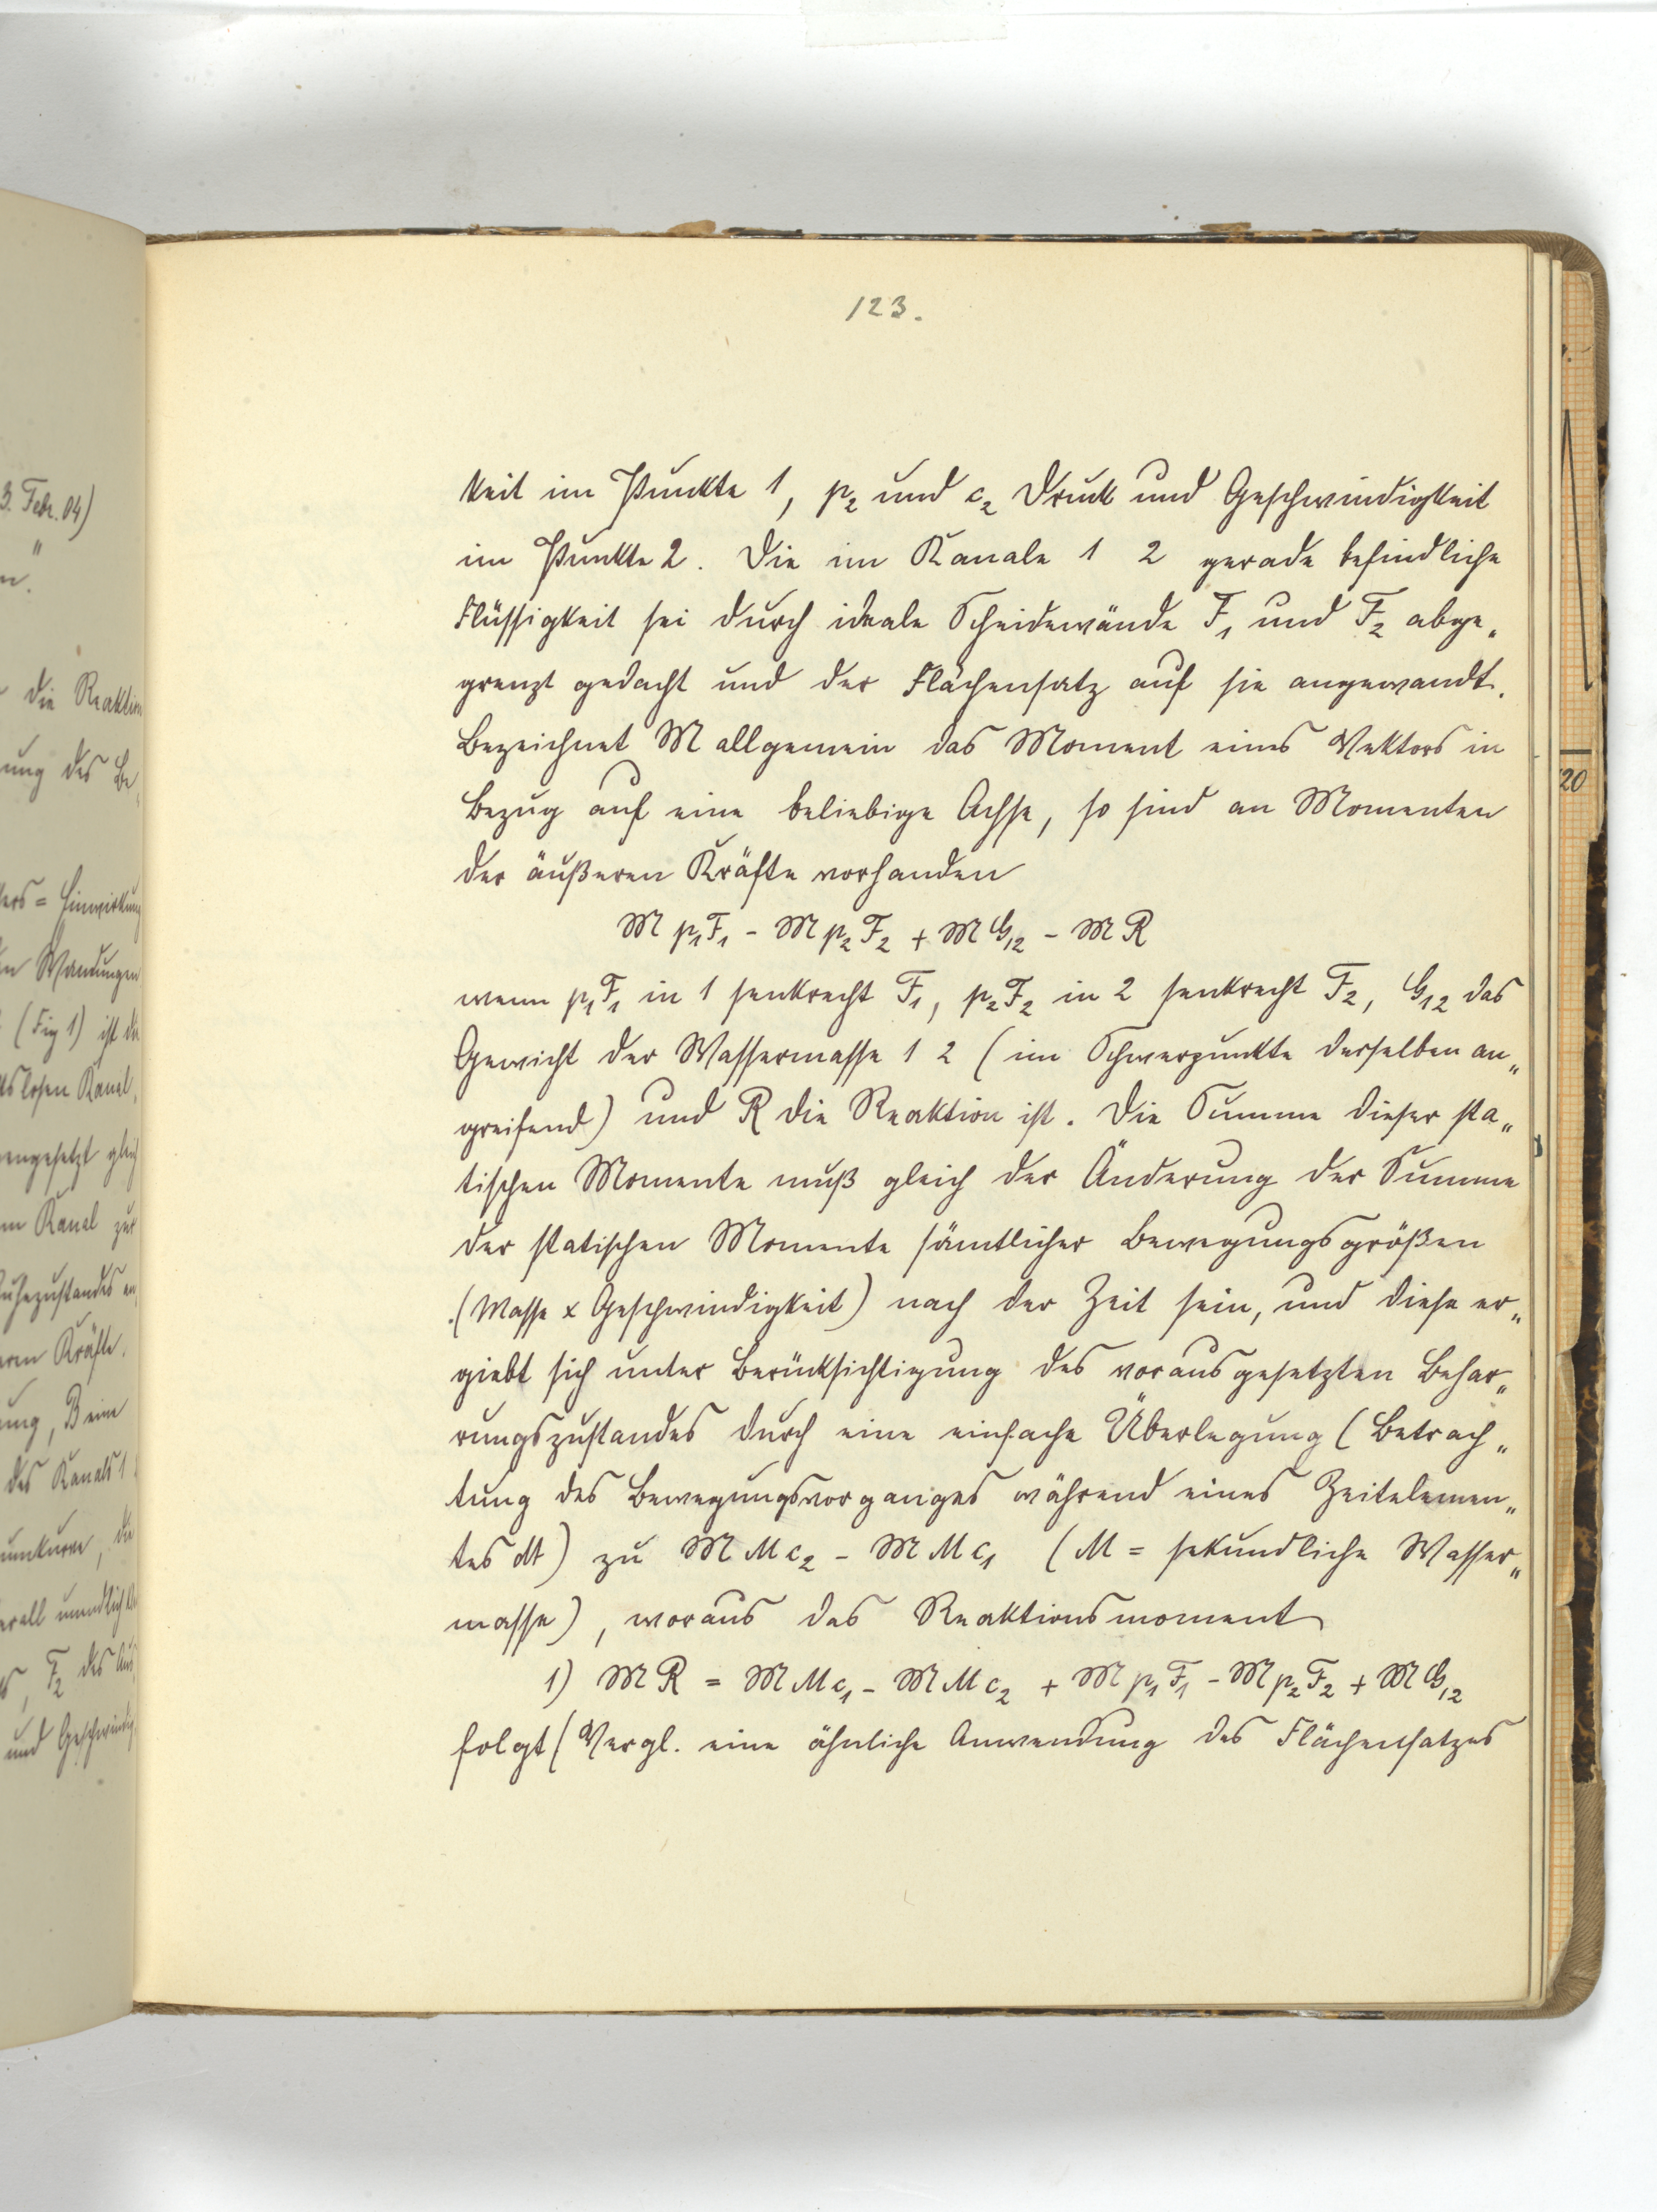 123.
keit im Punkte 1, p₂ und c₂ Druck und Geschwindigkeit
im Punkte 2. Die im Kanale 1 2 gerade befindliche
Flüssigkeit sei durch ideale Scheidewände F₁ und F₂ abge„
grenzt gedacht und der Flächensatz auf sie angewandt.
Bezeichnet 𝔐 allgemein das Moment eines Vektors in
Bezug auf eine beliebige Achse, so sind an Momenten
der äußeren Kräfte vorhanden
𝔐 p₁F₁ - 𝔐 p₂F₂ + 𝔐 G₁₂ - 𝔐 R
wenn p₁F₁ in 1 senkrecht F₁, p₂F₂ in 2 senkrecht F₂, G₁₂ das
Gewicht der Wassermasse 1 2 (im Schwerpunkte derselben an„
greifend) und R die Reaktion ist. Die Summe dieser sta„
tischen Momente muß gleich der Änderung der Summe
der statischen Momente sämtlicher Bewegungsgrößen
(Masse x Geschwindigkeit) nach der Zeit sein, und diese er„
giebt sich unter Berücksichtigung des vorausgesetzten Behar„
rungszustandes durch eine einfache Überlegung (Betrach„
tung des Bewegungsvorganges während eines Zeitelemen„
tes dt) zu 𝔐 M c₂ - 𝔐 M c₁ (M = sekundliche Wasser„
masse), woraus das Reaktionsmoment
1) 𝔐 R = 𝔐 M c₁ - 𝔐 M c₂ + 𝔐 p₁F₁ - 𝔐 p₂F₂ + 𝔐 G₁₂
folgt (Vergl. eine ähnliche Anwendung des Flächensatzes
3. Febr. 04)
"
n.
die Reaktion
ung des Be
ers = Einwirkung
n Wandungen
(Fig 1) ist die
tslosen Kanal
engesetzt gleich
m Kanal zur
uhezustandes en
ren Kräfte.
ung, B eine
des Kanals 1
umkurve, die
erall unendlich
s, F₂ des Aus
und Geschwindig
20